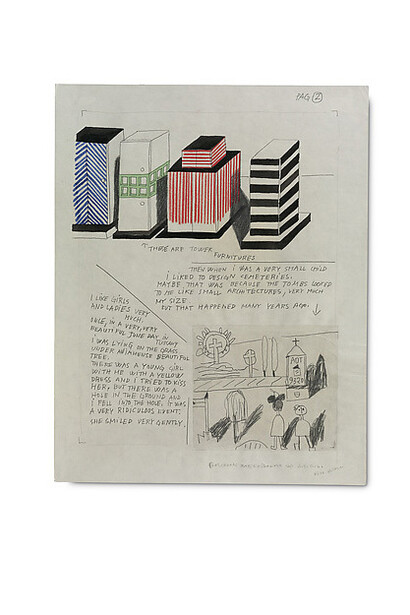 PAG 2
↑ THESE ARE TOWER
FURNITURES
THEN WHEN I WAS A VERY SMALL CHILD
I LIKED TO DESIGN CEMETERIES.
MAYBE THAT WAS BECAUSE THE TOMBS LOOKED
TO ME LIKE SMALL ARCHITECTURES, VERY MUCH
MY SIZE.
BUT THAT HAPPENED MANY YEARS AGO.
I LOVE GIRLS
AND LADIES VERY
MUCH.
ONCE, IN A VERY, VERY
BEAUTIFUL JUNE DAY IN
TUSCANY
I WAS LYING ON THE GRASS
UNDER AN IMMENSE BEAUTIFUL
TREE.
THERE WAS A YOUNG GIRL
WITH ME WITH A YELLOW
DRESS AND I TRIED TO KISS
HER, BUT THERE WAS A
HOLE IN THE GROUND AND
I FELL INTO THE HOLE. IT WAS
A VERY RIDICULOUS EVENT.
SHE SMILED VERY GENTLY.
AOT
9320